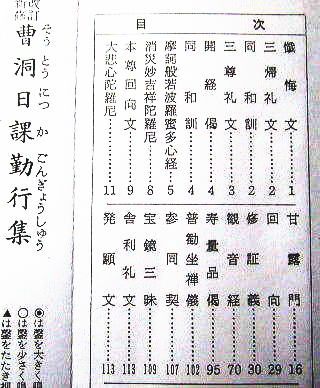 改訂
新修
曹洞日課勤行集
そうとうにっかごんぎょうしゅう
目次
懺悔文……1
三帰礼文……2
同和訓……2
三尊礼文……3
同和訓……4
開経偈……4
摩訶般若波羅蜜多心経……5
消災妙吉祥陀羅尼……8
本尊回向文……9
大悲心陀羅尼……11
甘露門……16
回向……29
修証義……30
観音経……70
寿量品偈……95
普勧坐禅儀……102
参同契……107
宝鏡三昧……109
舎利礼文……113
発願文……113
◉は鏧を大きく鳴
○は鏧を少さく鳴
▲は鏧をたたき押